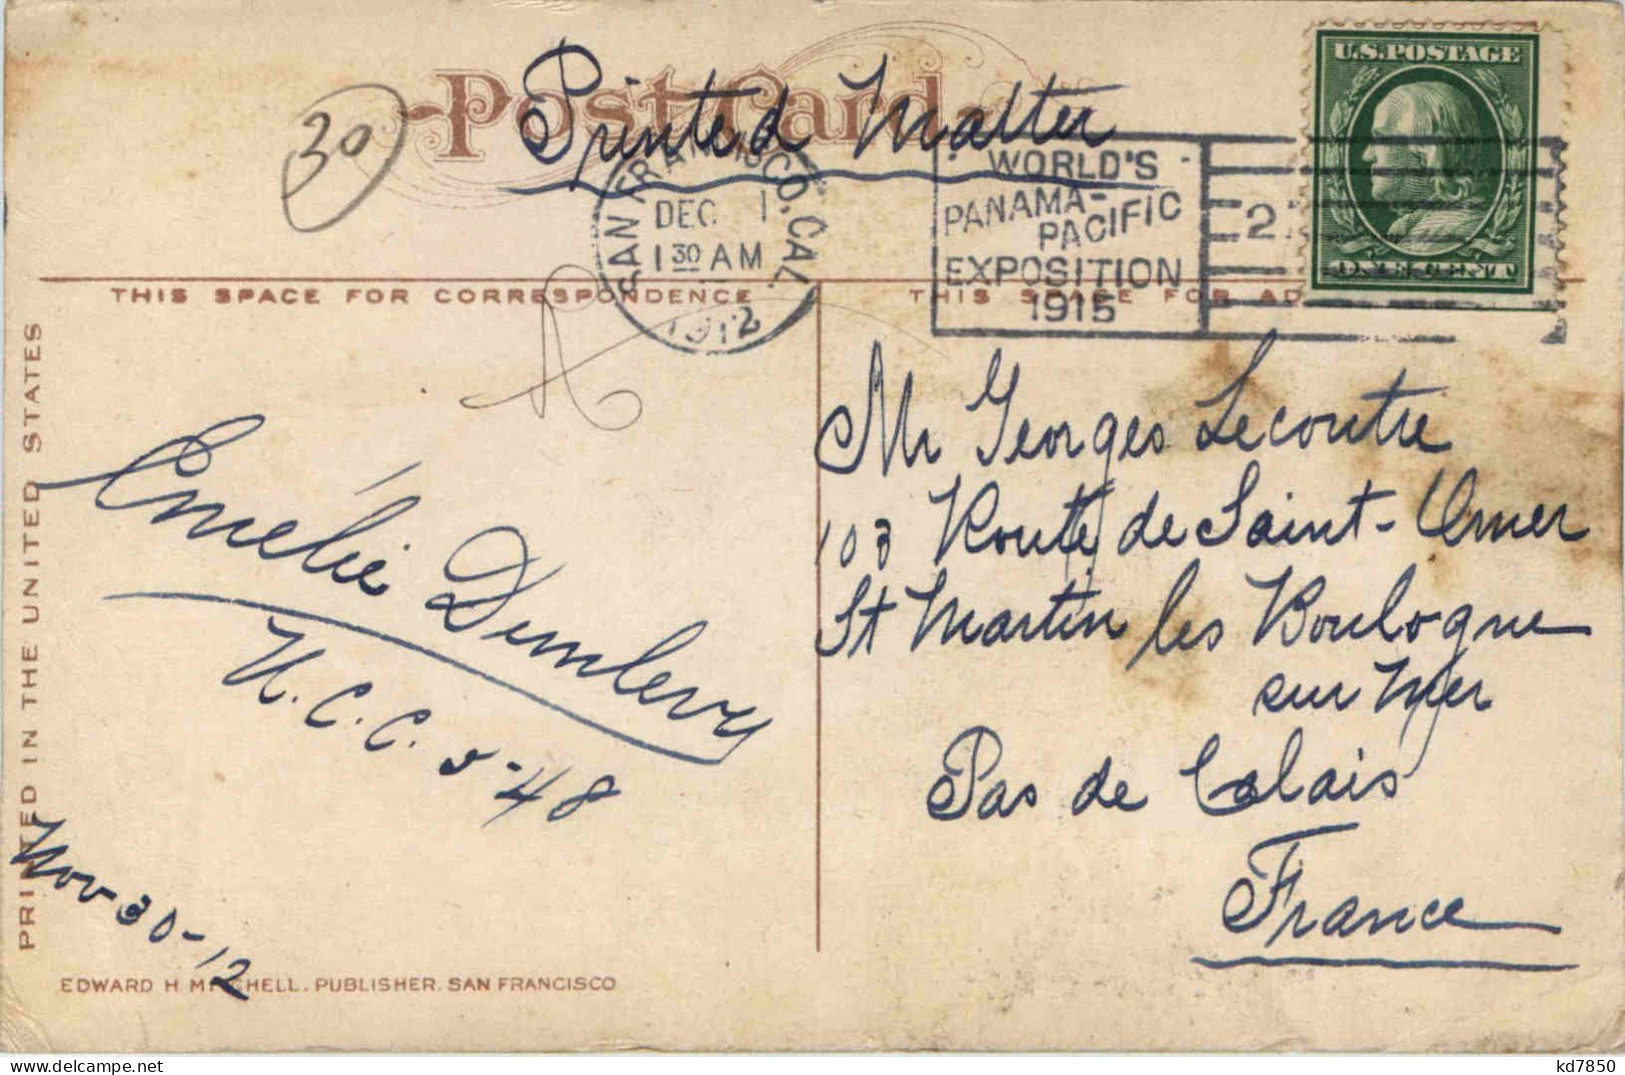 Post Card
Printed Matter
30
U.S. POSTAGE
ONE CENT
SAN FRANCISCO, CAL.
DEC 1
1 30 AM
1912
WORLD'S
PANAMA-
PACIFIC
EXPOSITION
1915
2
THIS SPACE FOR CORRESPONDENCE
THIS SPACE FOR AD
PRINTED IN THE UNITED STATES
Mr Georges Lecoutre
103 Route de Saint-Omer
St Martin les Boulogne
sur Mer
Pas de Calais
France
Emelie Dunlevy
U.C.C. 5-48
Nov 30-12
EDWARD H. MITCHELL, PUBLISHER, SAN FRANCISCO
kd7850